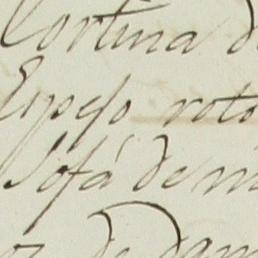 Cortina d
Espejo roto
Sofá de m
de Dam